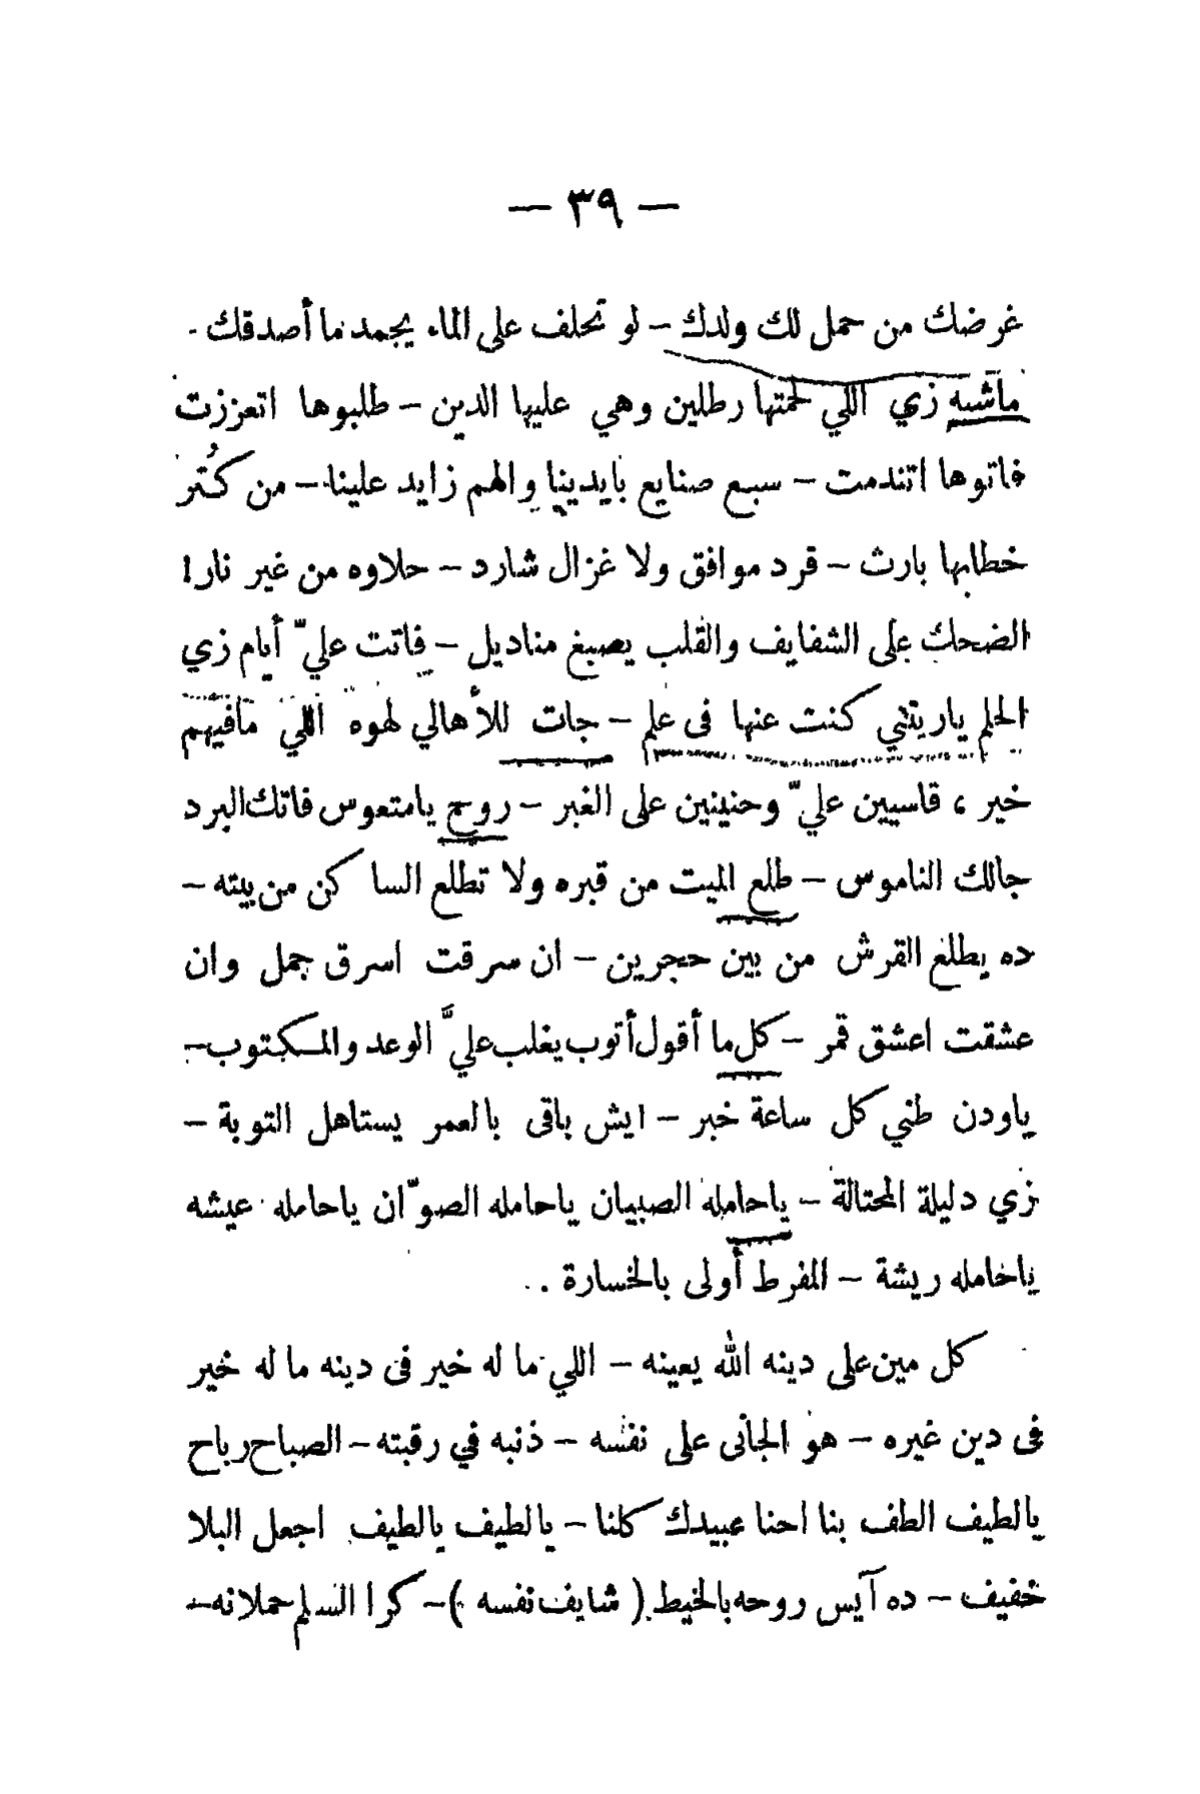 — ٣٩ —
غرضك من حمل لك ولدك – لو تحلف على الماء يجمد ما أصدقك
ماشيه زي اللي لحمتها رطلين وهي عليها الدين – طلبوها اتعززت
فاتوها اتندمت – سبع صنايع بايدينا والهم زايد علينا – من كُتر
خطابها بارث – قرد موافق ولا غزال شارد – حلاوه من غير نار!
الضحك على الشفايف والقلب يصبغ مناديل – فاتت عليّ أيام زي
الحلم ياريتني كنت عنها فى علم – جات للأهالي لهوه اللي مافيهم
خير ، قاسيين عليّ وحنينين على الغبر – روح يامتعوس فاتك البرد
جالك الناموس – طلع الميت من قبره ولا تطلع الساكن من بيته –
ده يطلع القرش من بين حجرين – ان سرقت اسرق جمل وان
عشقت اعشق قمر – كل ما أقول أتوب يغلب عليَّ الوعد والمكتوب –
ياودن طني كل ساعة خبر – ايش باقى بالعمر يستاهل التوبة –
زي دليلة المحتالة – ياحامله الصبيان ياحامله الصوّان ياحامله عيشه
ياحامله ريشة – المفرط أولى بالخسارة .
كل مين على دينه الله يعينه – اللي ما له خير فى دينه ما له خير
فى دين غيره – هو الجانى على نفسه – ذنبه في رقبته – الصباح رباح
يالطيف الطف بنا احنا عبيدك كلنا – يالطيف يالطيف اجعل البلا
خفيف – ده آيس روحه بالخيط ( شايف نفسه ) – كرا السلم حملانه –